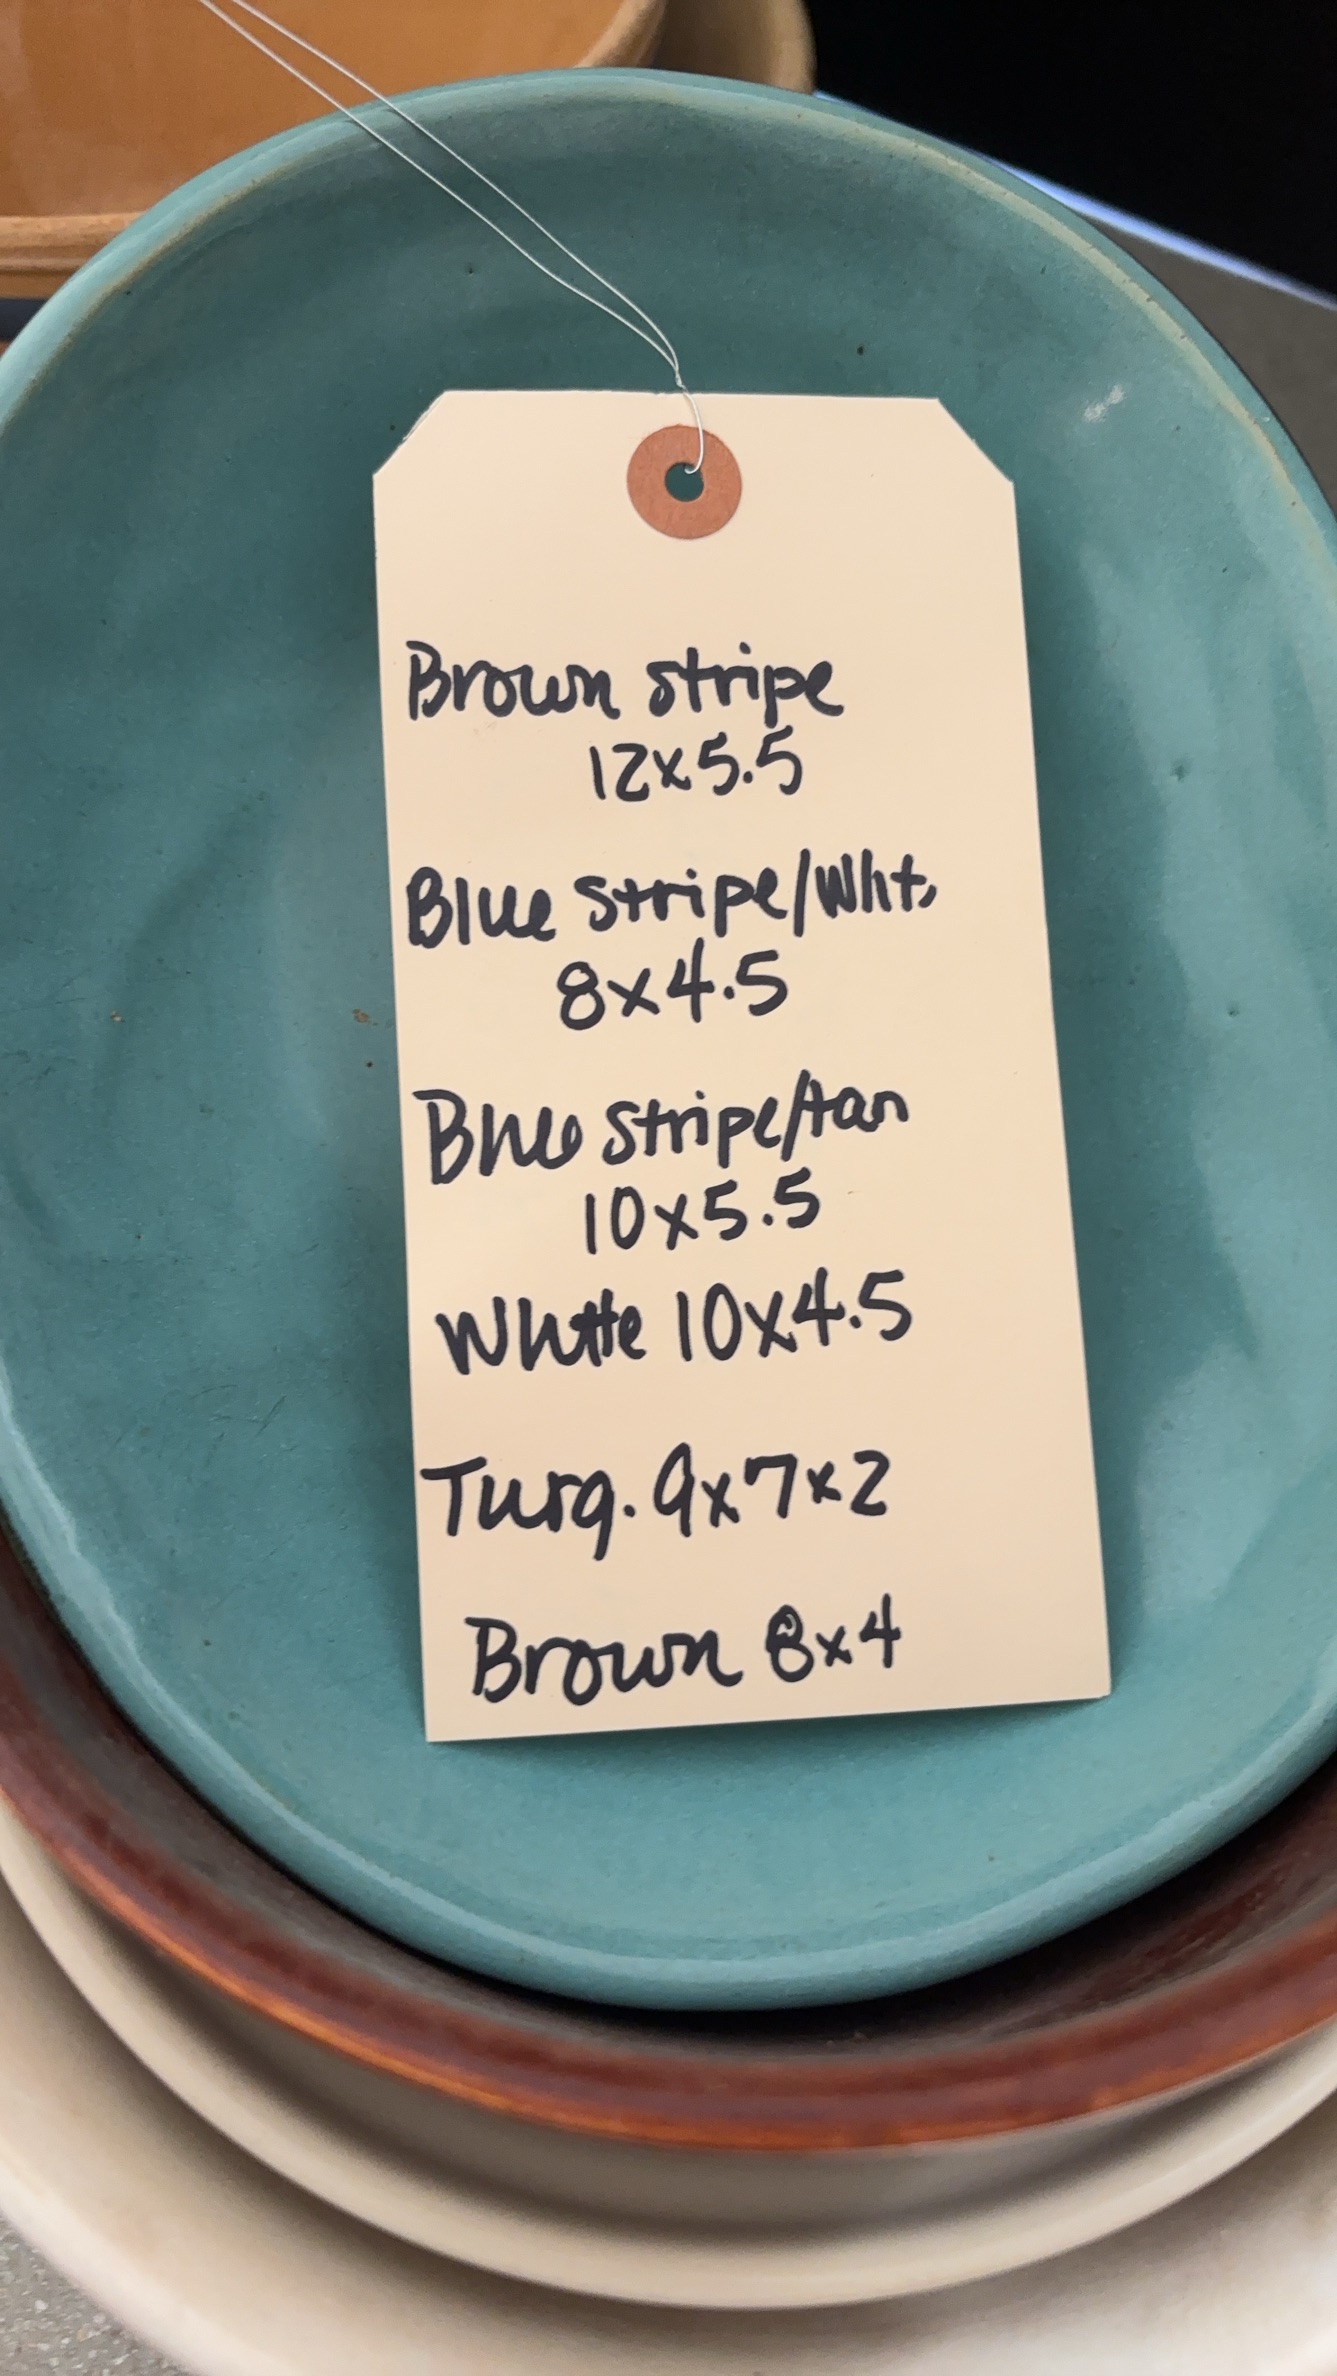 Brown stripe
12x5.5
Blue stripe/White
8x4.5
Blue stripe/tan
10x5.5
White 10x4.5
Turq. 9x7x2
Brown 8x4